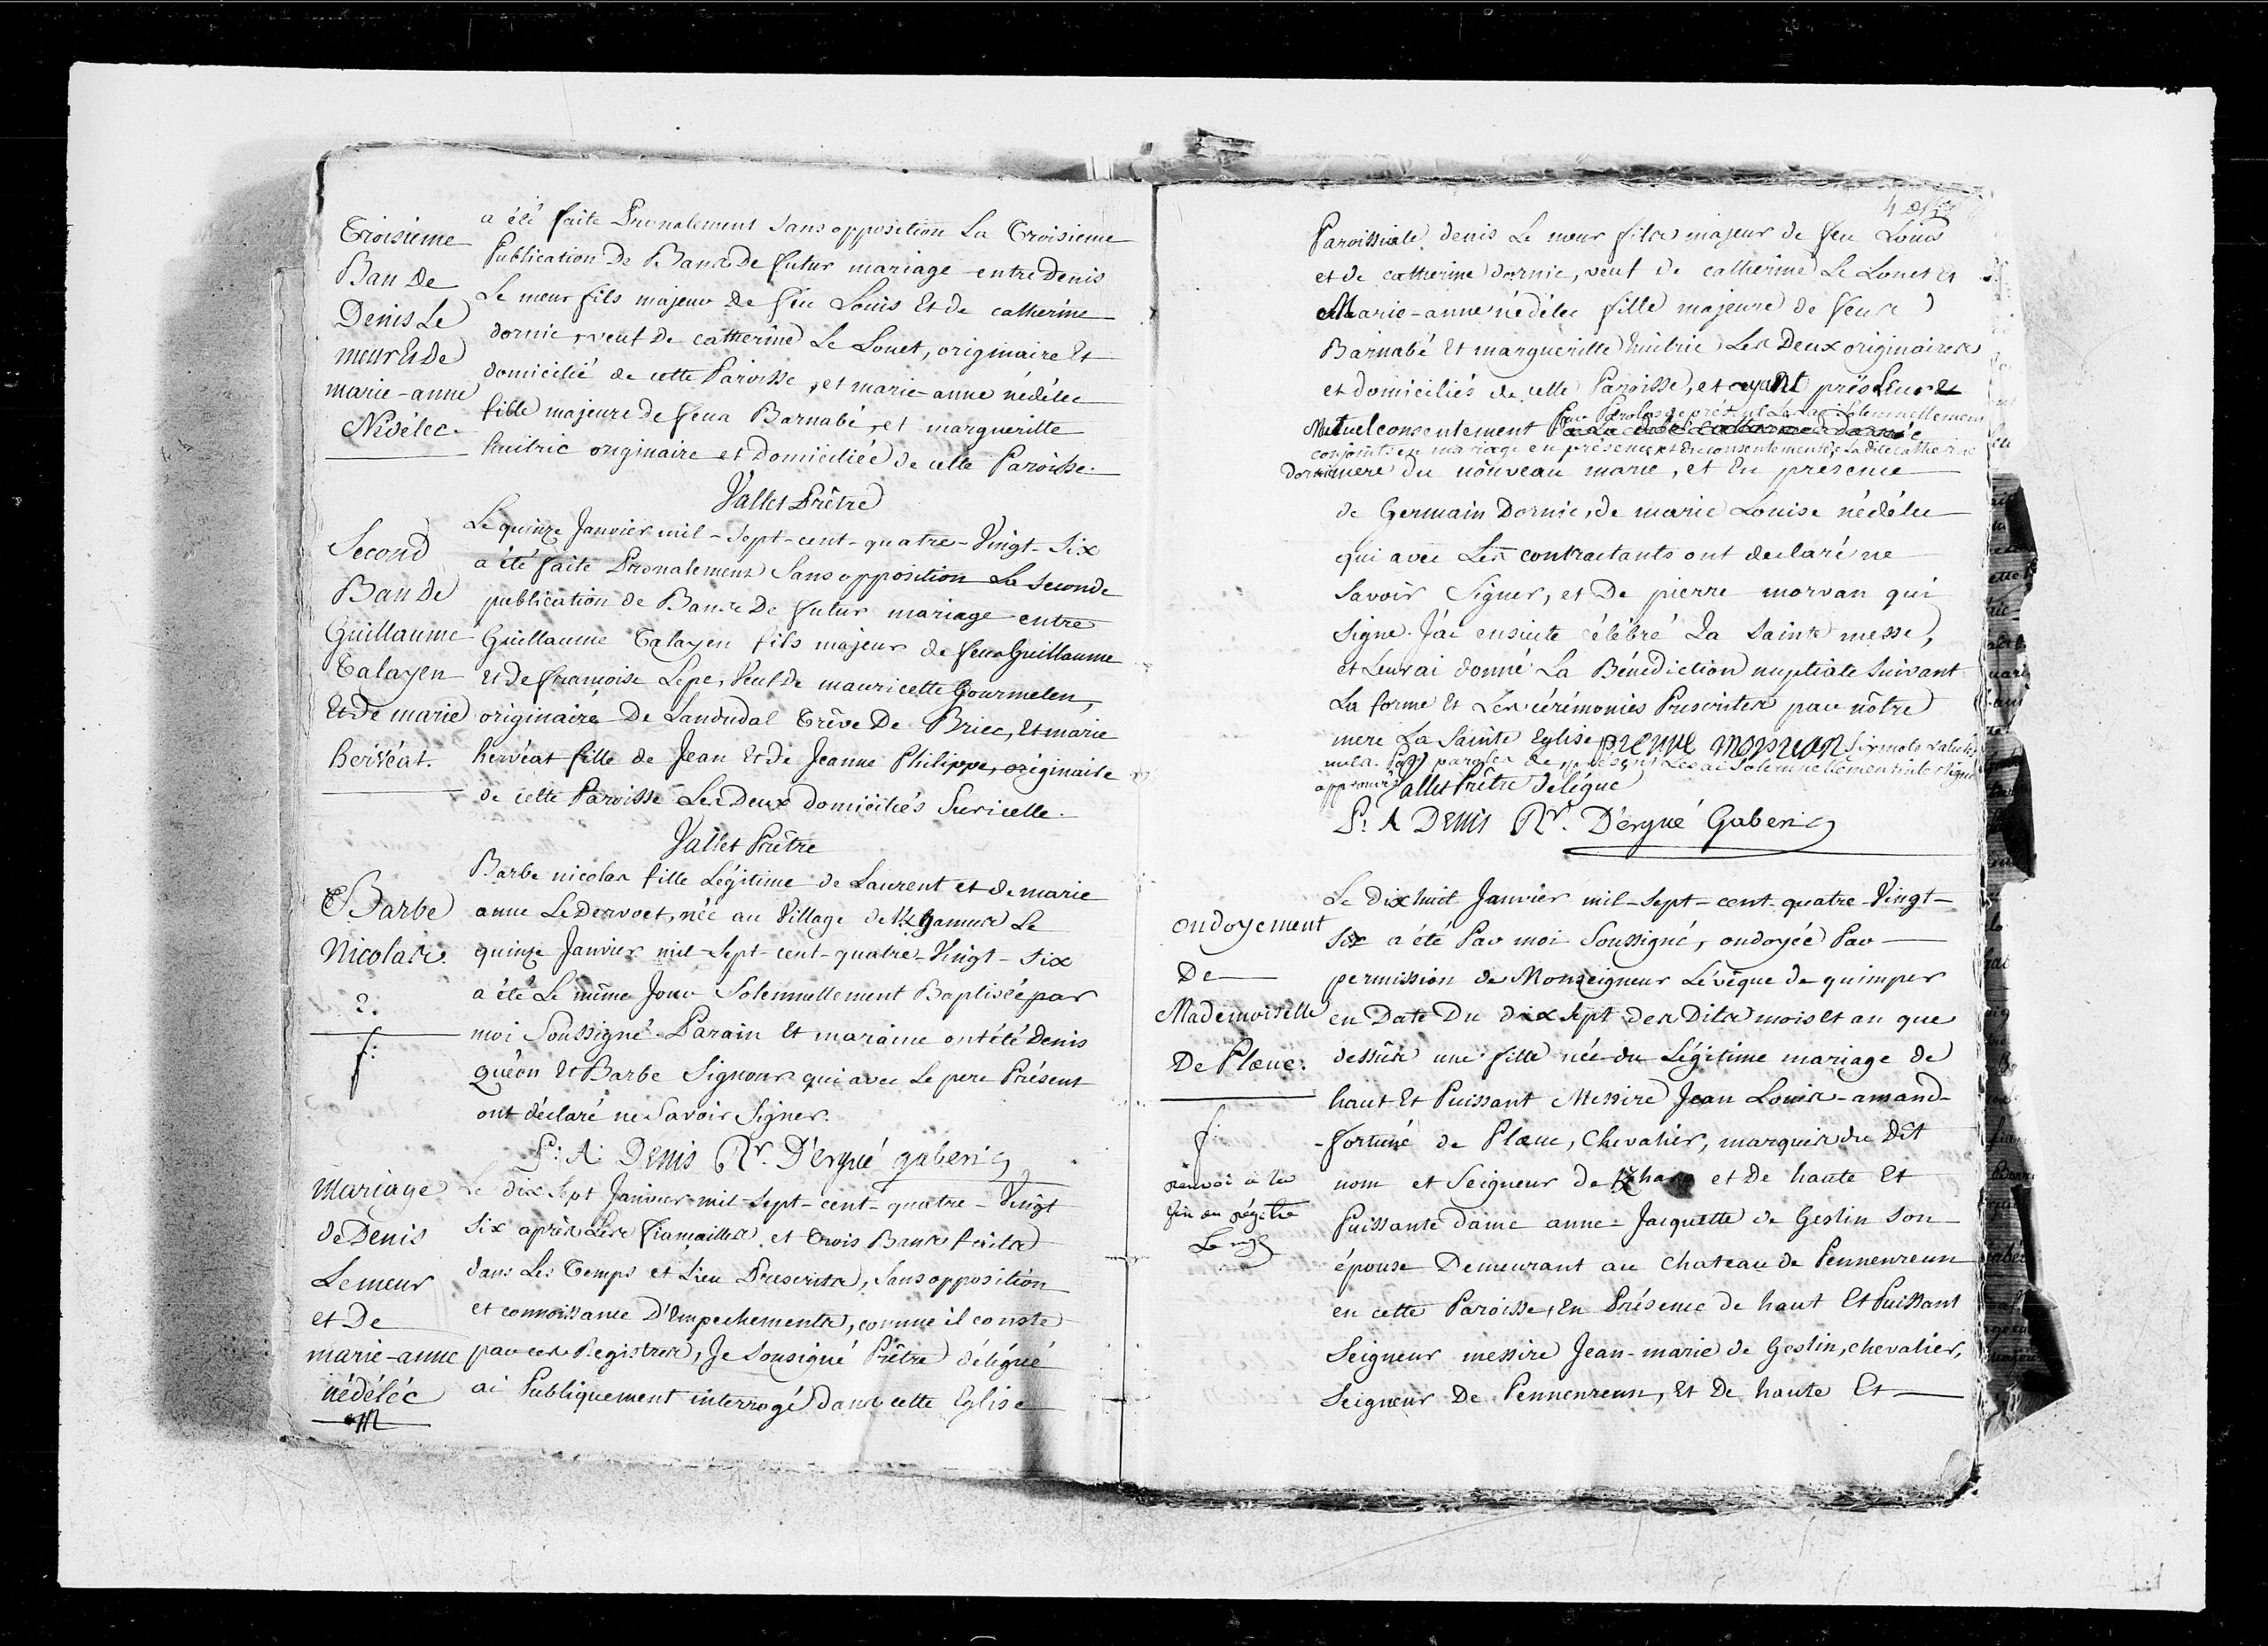 Troisieme
Ban de
Denis Le
meur Et de
marie-anne
Nédélec.
a été faite Pronalement sans opposition La Troisieme
Publication de Bans De futur mariage entre Denis
Le meur fils majeur de feu Louis Et de catherine
dornic, veuf de catherine Le Louet, originaire Et
domicilié de cette Paroisse, et marie-anne nédélec
fille majeure de feus Barnabé, et marguerille
huitric originaire et Domiciliée de cette Paroisse.
Vallet Prêtre
Second
Ban de
Guillaume
Talayen
Et de marie
hervéat.
Le quinze Janvier mil-sept-cent-quatre-Vingt-six
a été faite Pronalement Sans opposition La seconde
publication de Bans De futur mariage entre
Guillaume Talayen fils majeur de feus Guillaume
et de françoise Lepe, Veuf de mauricette Gourmelen,
originaire De Landudal Trêve De Briec, Et marie
hervéat fille de Jean Et de Jeanne Philippe, originaire
de cette Paroisse Les Deux domiciliés Suricelle.
Vallet Prêtre
Barbe
Nicolas.
2.
f:
Barbe nicolas fille Légitime de Laurent et de marie
anne Le Dervoet, née au Village de Le
quinze Janvier mil-sept-cent-quatre-Vingt-six
a été Le même Jour Solemnellement Baptisée par
moi Soussigné. Parain Et maraine ont été Denis
Quéön Et Barbe Signour qui avec Le pere Présent
ont déclaré ne Savoir Signer.
P: A: Denis Rr. D'ergué gaberic
Mariage
de Denis
Le meur
et De
marie-anne
nédéléc
M
Le dix sept Janvier mil-sept-cent-quatre-Vingt
six après Les fiançailles et Trois Bans faits
dans Les Temps et Lieu Prescrits, Sans opposition
et connoissance D'empechements, comme il conste
par ces Registres, Je Sousigné Prêtre délégué
ai Publiquement interrogé dans cette Eglise
Paroissiale, denis Le meur fils majeur de feu Louis
et de catherine dornic, veuf de catherine Le Louet Et
Marie-anne nédélec fille majeure de feus
Barnabé Et marguerille huitric Les Deux originaires
et domiciliés de cette Paroisse, et ayant pris Leur
Par Paroles de présent Les ai Solemnellement
Mutuel consentement
conjoints en mariage en présence et du consentement de La dite catherine
dornic mere du nôuveau marie, et En presence
de Germain Dornic, de marie Louise nédélec
qui avec Les contractants ont declaré ne
Savoir Signer, et De pierre morvan qui
Signe. J'ai ensuite célébré La Sainte messe,
et Leur ai donné La Bénédiction nuptiale Suivant
La forme Et Les cérémonies Prescrites par nôtre
mere La Sainte Eglise. pierre morvan Six mots raturés
nuls. Par paroles de présent Les ai Solemnellement interligne
approuvé Vallet Prêtre Délégué
P: A Denis Rr. D'ergué Gaberic
ondoyement
De
Mademoiselle
De Plœuc.
f:
renvoi à la
fin du régitre
Le dix huit Janvier mil-sept-cent quatre-Vingt-
Six a été Par moi Soussigné, ondoyée Par
permission de Monseigneur L'évêque de quimper
en Date Du dix sept des Dits mois et an que
dessûs une fille née du Légitime mariage de
haut Et Puissant Messire Jean Louis-amand-
-fortuné de Plœuc, Chevalier, marquis du Dit
nom et Seigneur de et De haute Et
Puissante dame anne-Jacquette de Geslin Son
épouse Demeurant au chateau de Pennenreun
en cette Paroisse, En Présence de haut Et Puissant
Seigneur messire Jean-marie de Geslin, chevalier,
Seigneur De Pennenreun, Et De haute Et